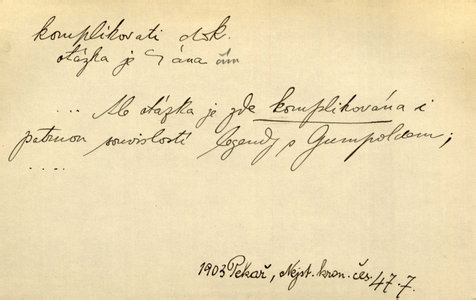 komplikovati dok.
otázka je ~ána čím
.... Ale otázka je zde komplikována i
patrnou souvislostí legendy s Gumpoldem;
....
1903 Pekař, Nejst. kron. čes. 47.7.